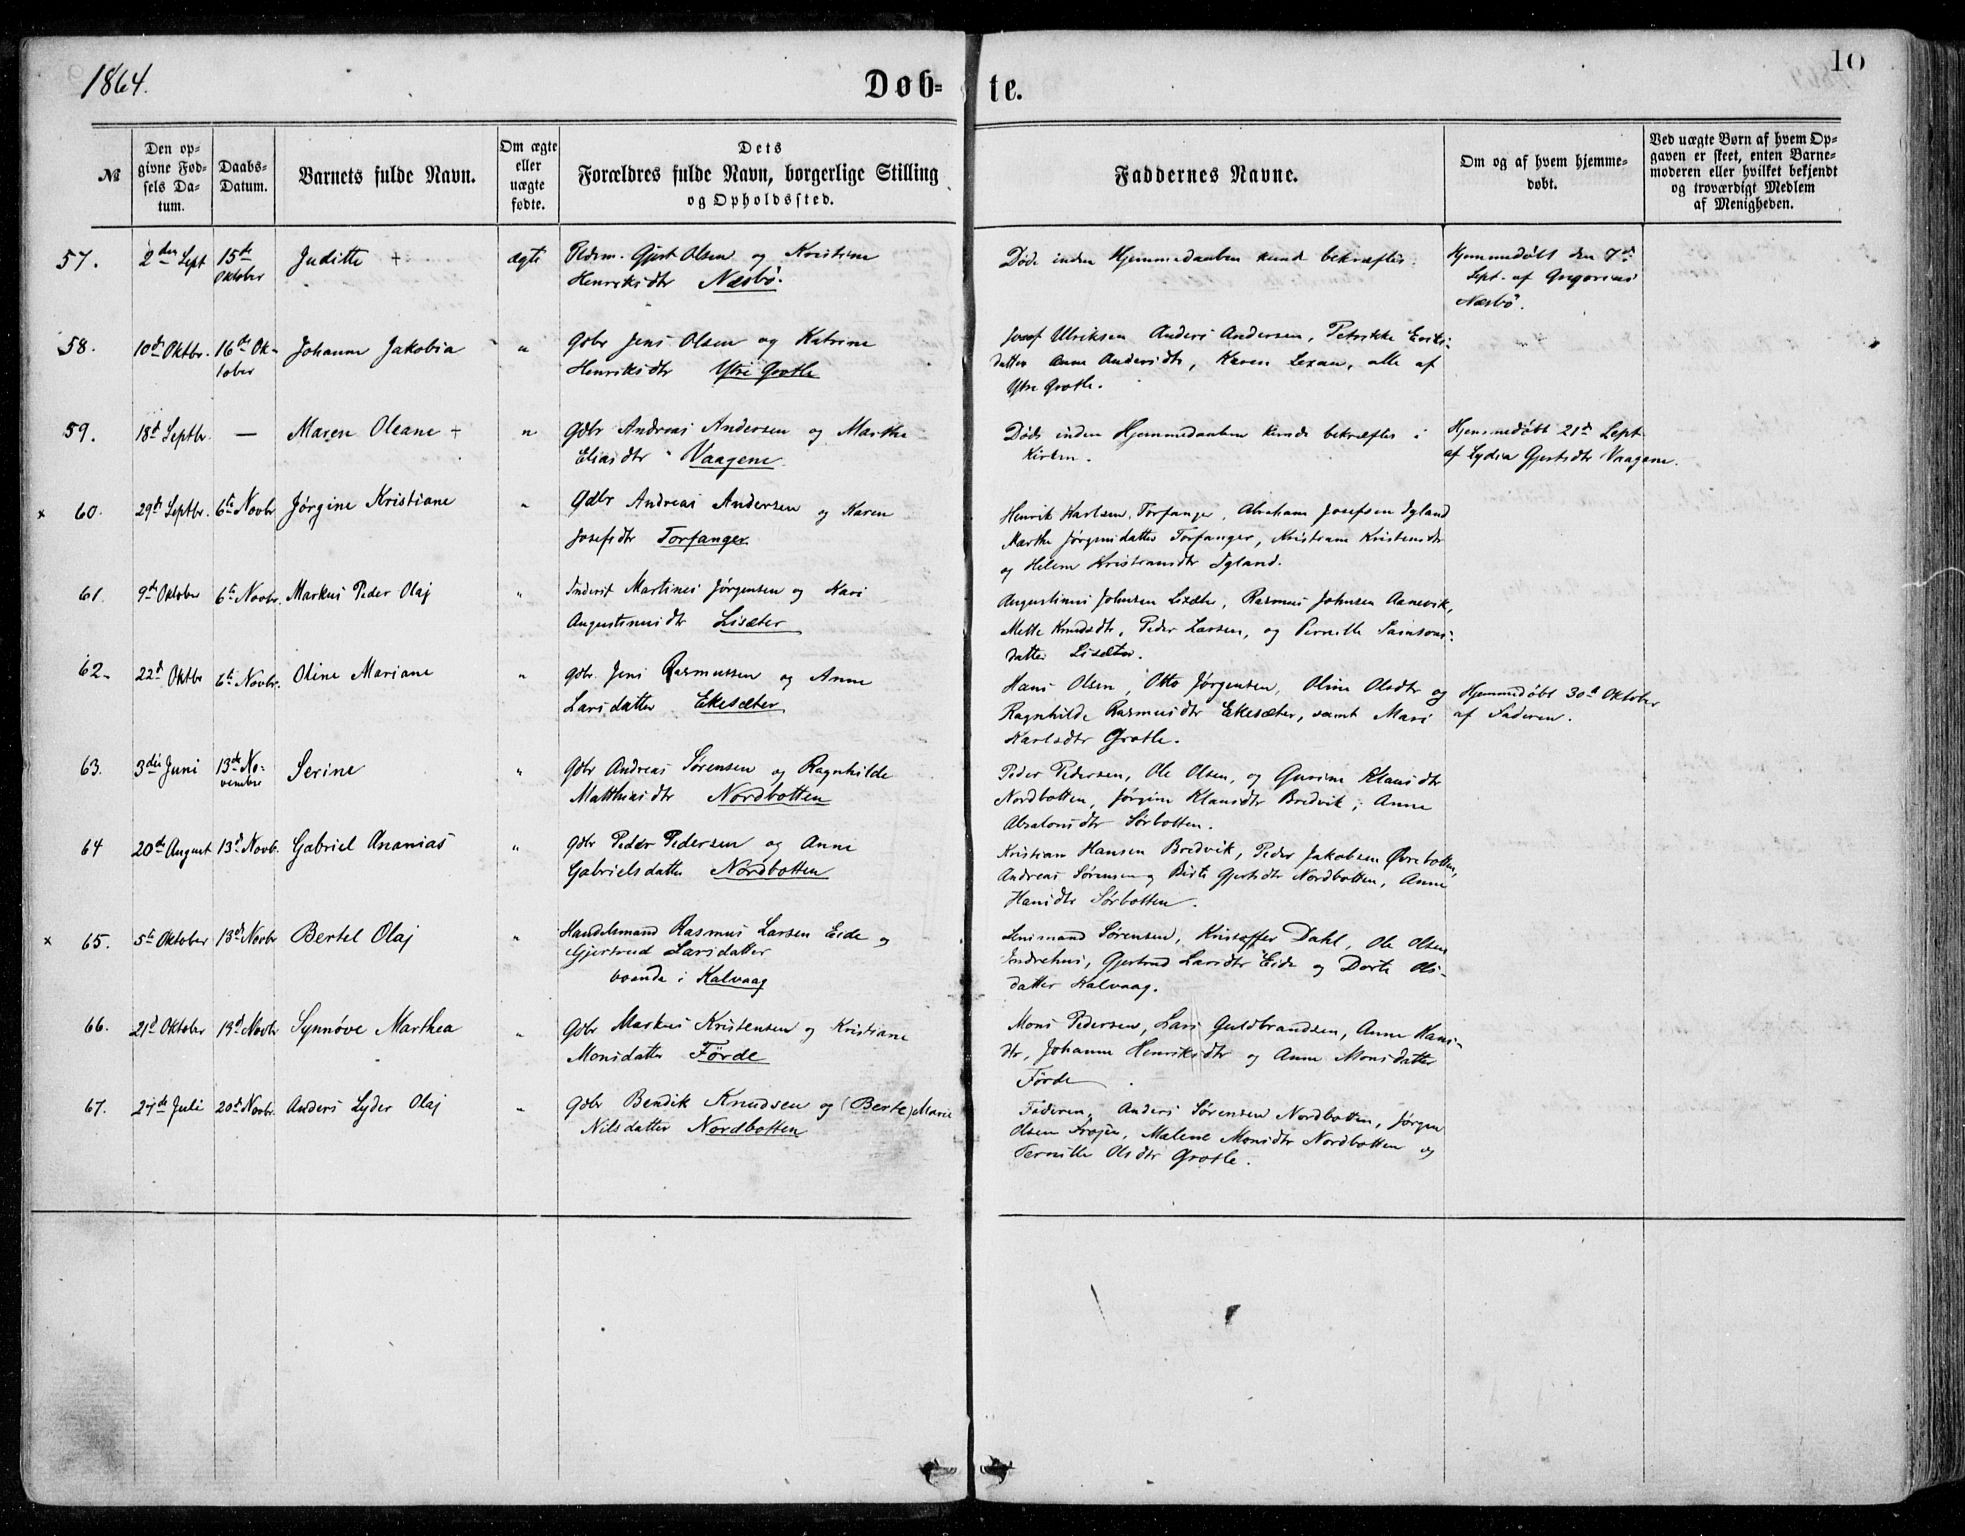 1864.
Døb-
te.
10
№
Den op-
givne Fød-
sels Da-
tum.
Daabs-
Datum.
Barnets fulde Navn.
Om ægte
eller
uægte
fødte.
Dets
Forældres fulde Navn, borgerlige Stilling
og Opholdssted.
Faddernes Navne.
Om og af hvem hjemme-
døbt.
Ved uægte Børn af hvem Op-
gaven er skeet, enten Barne-
moderen eller hvilket bekjendt
og troværdigt Medlem
af Menigheden.
57. 2den Sept 15de Oktober Juditte + ægte
Pedem. Gjert Olsen og Kristine
Henriksdtr Næsbö.
Døde inden Hjemmedaaben kunde bekræftes.
Hjemmedøbt den 7de
Sept. af
Næsbö.
58. 10de Oktbr. 16de Ok-
tober
Johanne Jakobia "
Gdbr Jens Olsen og Katrine
Henriksdtr Ytre Grotle
Josef Ulriksen Anders Andersen, Petrikke Eriks-
datter Anne Andersdtr, Karen Lexau, alle af
Ytre Grotle.
59. 18d Septbr. — Maren Oleane + "
Gdbr Andreas Andersen og Marthe
Eliasdtr Vaagene
Døde inden Hjemmedaaben kunde bekræftes i
Kirken.
Hjemmedøbt 21de Sept
af Lydia Gjertsdtr Vaagene.
x 60. 29de Septbr. 6te Novbr Jørgine Kristiane "
Gdbr Andreas Andersen og Karen
Josefsdtr Torfanger
Henrik Karlsen Torfanger, Abraham Josefsen Igland
Marthe Jørgensdatter Torfanger, Kristiane Kristensdtr
og Helene Kristiansdtr Igland.
61. 9de Oktober 6te Novbr. Markus Peder Olaj "
Inderst Martinus Jørgensen og Kari
Augustinusdtr Lisæter
Augustinus Johnsen Lisæter, Rasmus Johnsen Aanevik,
Mette Knudsdtr, Peder Larsen, og Pernille Samsons-
datter Lisæter.
62. 22d Oktbr 6te Novbr. Oline Mariane "
Gdbr. Jens Rasmussen og Anne
Larsdatter Ekesæter
Hans Olsen, Otto Jørgensen, Oline Olsdtr og
Ragnhilde Rasmusdtr Ekesæter, samt Mari
Karlsdtr Grotle.
Hjemmedøbt 30d Oktober
af Faderen.
63. 3die Juni 13de No-
vember
Serine "
Gdbr Andreas Sørensen og Ragnhilde
Matthiasdtr Nordbotten
Peder Pedersen, Ole Olsen, og Gurine Klausdtr
Nordbotten, Jørgine Klausdtr Bredvik, Anne
Absalonsdtr Sørbotten.
64 20de August 13d Novb. Gabriel Ananias "
Gdbr Peder Pedersen og Anne
Gabrielsdatter Nordbotten
Kristian Hansen Bredvik, Peder Jakobsen Øvrebotten,
Andreas Sørensen og Birte Gjertsdtr Nordbotten, Anne
Hansdtr Sørbotten.
x 65. 5te Oktober 13d Novbr Bertel Olaj "
Handelsmand Rasmus Larsen Eide og
Gjertrud Larsdatter
boende i Kalvaag
Lensmand Sørensen, Kristoffer Dahl, Ole Olsen
Indrehus, Gjertrud Larsdtr Eide og Dorte Ols-
datter Kalvaag.
66. 21d Oktober 13d Novbr Synnöve Marthea "
Gdbr Markus Kristensen og Kristiane
Monsdatter Förde
Mons Pedersen, Lars Guldbrandsen, Anne Hans-
dtr, Johanne Henriksdtr og Anne Monsdatter
Förde.
67. 27de Juli 20d Novbr. Anders Lyder Olaj "
Gdbr Bendik Knudsen og (Berte) Marie
Nilsdatter Nordbotten
Faderen, Anders Sørensen Nordbotten, Jørgen
Olsen Frøjen, Malene Monsdtr Nordbotten og
Pernille Olsdtr Grotle.